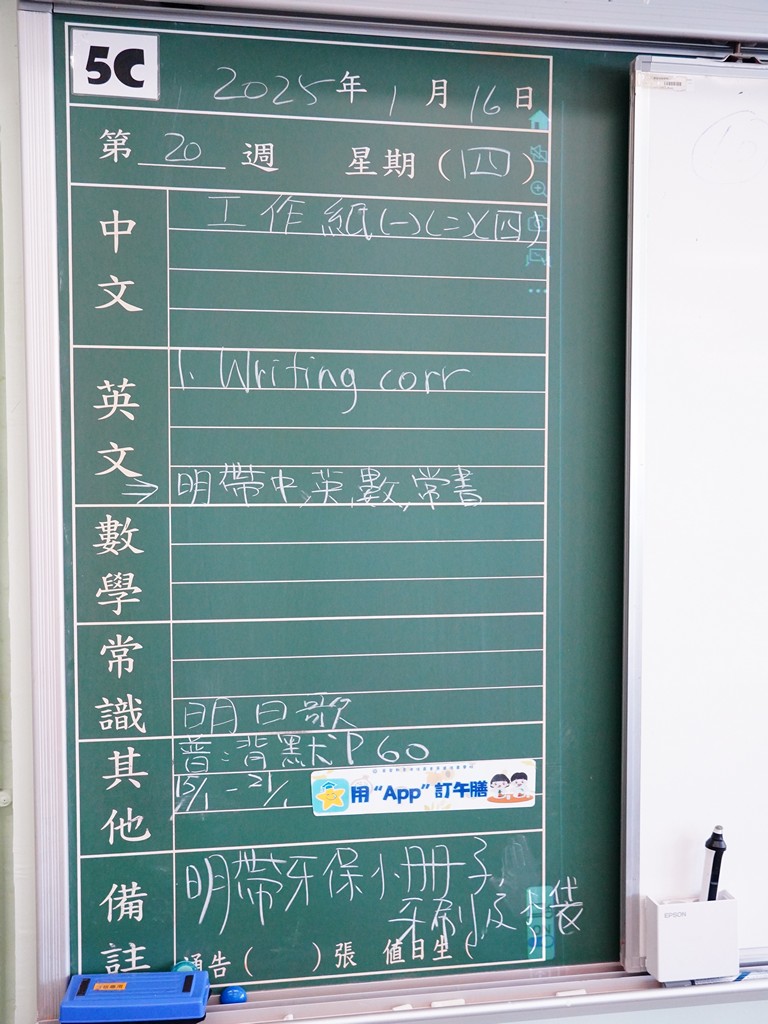 5C
2025年1月16日
第 20 週 星期(四)
中文
工作紙(一)(二)(四)
英文
1. Writing corr
→明帶中,英,數,常書
數學
常識
明日歌
其他
普:背默P60
15/1-21/1
用“App”訂午膳
備註
明帶牙保小冊子,
牙刷及小袋
通告( )張 值日生(
EPSON